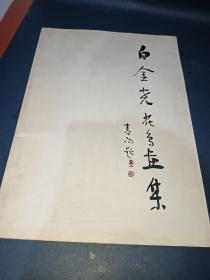 白金尧花鸟画集